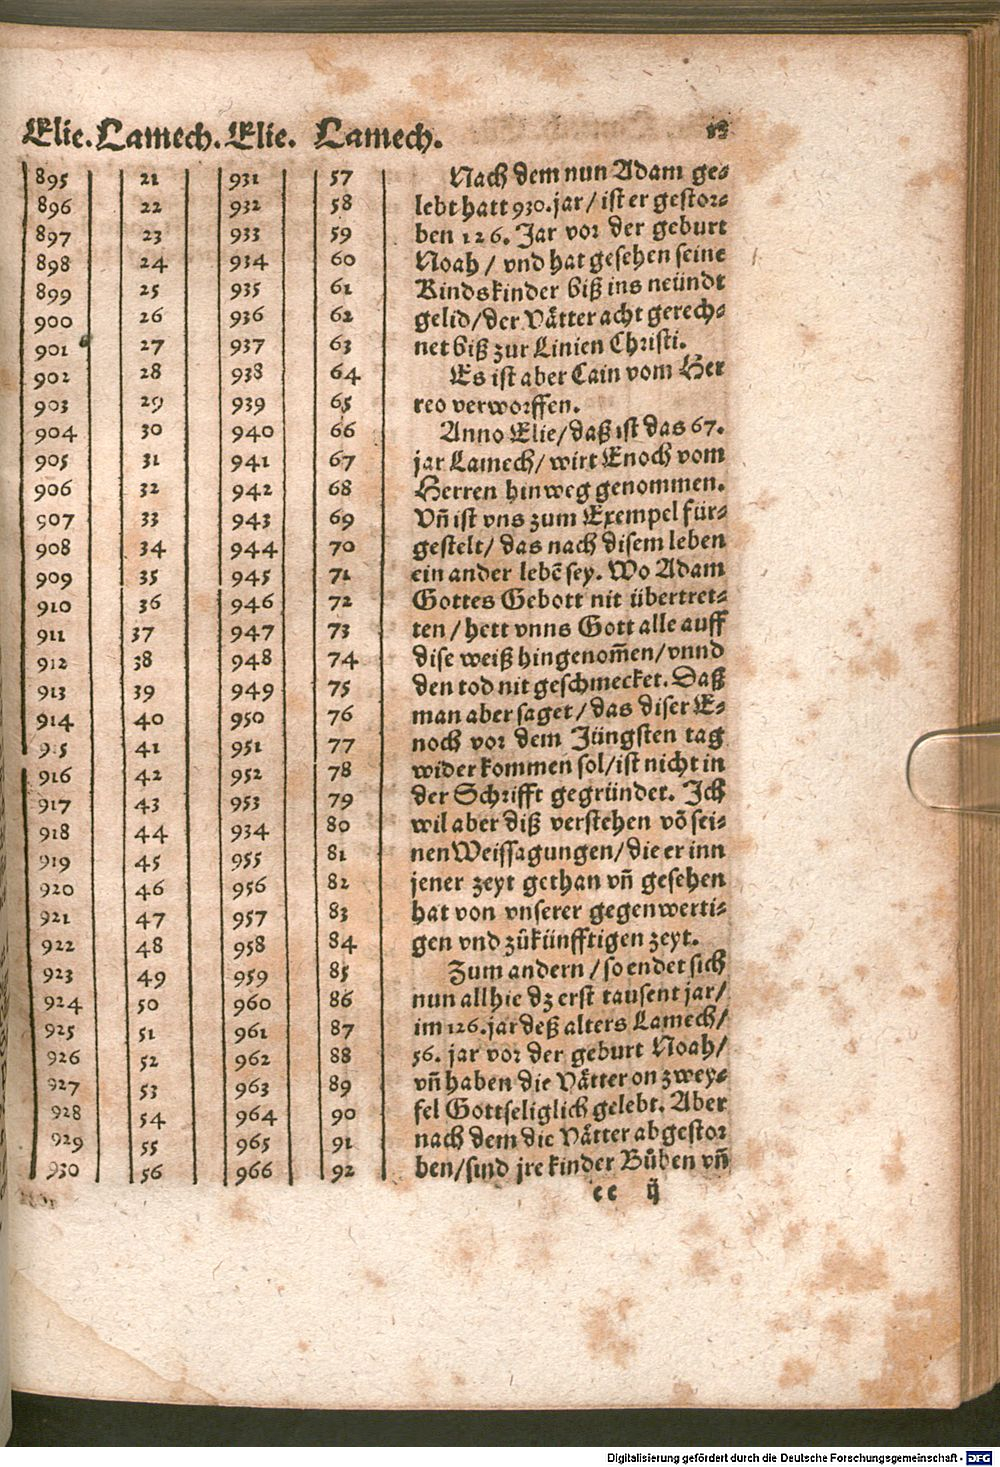 Elie. Lamech. Elie. Lamech.
895 21 931 57
896 22 932 58
897 23 933 59
898 24 934 60
899 25 935 61
900 26 936 62
901 27 937 63
902 28 938 64
903 29 939 65
904 30 940 66
905 31 941 67
906 32 942 68
907 33 943 69
908 34 944 70
909 35 945 71
910 36 946 72
911 37 947 73
912 38 948 74
913 39 949 75
914 40 950 76
915 41 951 77
916 42 952 78
917 43 953 79
918 44 934 80
919 45 955 81
920 46 956 82
921 47 957 83
922 48 958 84
923 49 959 85
924 50 960 86
925 51 961 87
926 52 962 88
927 53 963 89
928 54 964 90
929 55 965 91
930 56 966 92
Nach dem nun Adam ge⸗
lebt hatt 930. jar/ ist er gestor⸗
ben 126. Jar vor der geburt
Noah/ vnd hat gesehen seine
Kindskinder biß ins neündt
gelid/der Vätter acht gerech⸗
net biß zur Linien Christi.
Es ist aber Cain vom Her
reo verworffen.
Anno Elie/daß ist das 67.
jar Lamech/ wirt Enoch vom
Herren hinweg genommen.
Vñ ist vns zum Exempel für⸗
gestelt/ das nach disem leben
ein ander lebẽ sey. Wo Adam
Gottes Gebott nit übertret⸗
ten/ hett vnns Gott alle auff
dise weiß hingenom̃en/vnnd
den tod nit geschmecket. Daß
man aber saget/ das diser E⸗
noch vor dem Jüngsten tag
wider kommen sol/ist nicht in
der Schrifft gegründet. Ich
wil aber diß verstehen võ sei⸗
nen Weissagungen/die er inn
jener zeyt gethan vñ gesehen
hat von vnserer gegenwerti⸗
gen vnd zůkünfftigen zeyt.
Zum andern/so endet sich
nun allhie dz erst tausent jar/
im 126. jar deß alters Lamech/
56. jar vor der geburt Noah/
vñ haben die Vätter on zwey⸗
fel Gottseliglich gelebt. Aber
nach dem die Vätter abgestor
ben/sind jre kinder Bůben vñ
cc ij
Digitalisierung gefördert durch die Deutsche Forschungsgemeinschaft - DFG